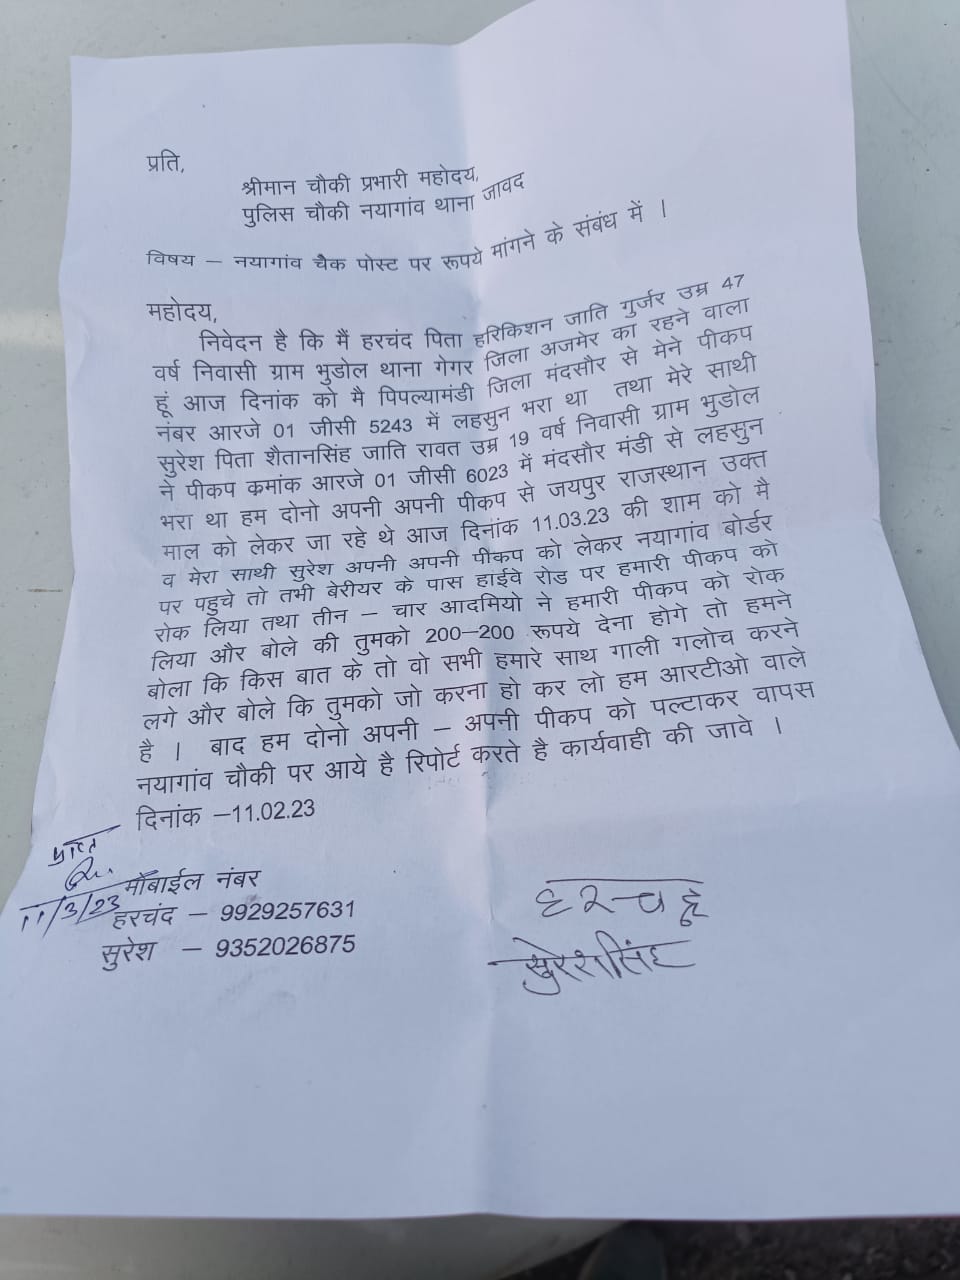 प्रति,
श्रीमान चौकी प्रभारी महोदय,
पुलिस चौकी नयागांव थाना जावद
विषय – नयागांव चैक पोस्ट पर रूपये मांगने के संबंध में ।
महोदय,
निवेदन है कि मैं हरचंद पिता हरिकिशन जाति गुर्जर उम्र 47
वर्ष निवासी ग्राम भुडोल थाना गेगर जिला अजमेर का रहने वाला
हूं आज दिनांक को मै पिपल्यामंडी जिला मंदसौर से मेने पीकप
नंबर आरजे 01 जीसी 5243 में लहसुन भरा था तथा मेरे साथी
सुरेश पिता शैतानसिंह जाति रावत उम्र 19 वर्ष निवासी ग्राम भुडोल
ने पीकप कमांक आरजे 01 जीसी 6023 में मंदसौर मंडी से लहसुन
भरा था हम दोनो अपनी अपनी पीकप से जयपुर राजस्थान उक्त
माल को लेकर जा रहे थे आज दिनांक 11.03.23 की शाम को मै
व मेरा साथी सुरेश अपनी अपनी पीकप को लेकर नयागांव बोर्डर
पर पहुचे तो तभी बेरीयर के पास हाईवे रोड पर हमारी पीकप को
रोक लिया तथा तीन – चार आदमियो ने हमारी पीकप को रोक
लिया और बोले की तुमको 200–200 रूपये देना होगे तो हमने
बोला कि किस बात के तो वो सभी हमारे साथ गाली गलोच करने
लगे और बोले कि तुमको जो करना हो कर लो हम आरटीओ वाले
है । बाद हम दोनो अपनी – अपनी पीकप को पल्टाकर वापस
नयागांव चौकी पर आये है रिपोर्ट करते है कार्यवाही की जावे ।
दिनांक –11.02.23
प्राप्त
11/3/23
मोबाईल नंबर
हरचंद – 9929257631
सुरेश – 9352026875
हरचन्द
सुरेशसिंह